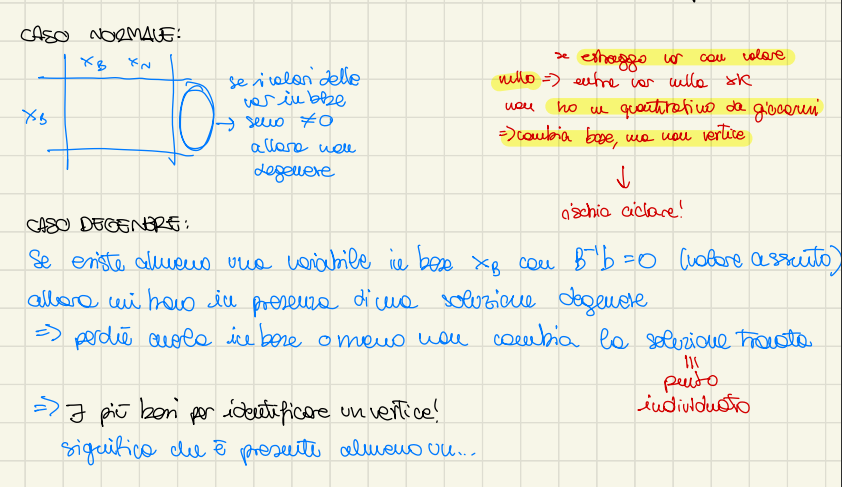 CASO NORMALE:
x_B x_N
x_B
se i valori delle
var in base
sono ≠0
allora non
degenere
se estraggo var con valore
nullo => entra var nulla
non ho un quantitativo da giocarmi
=> cambia base, ma non vertice
↓
rischia ciclare!
CASO DEGENERE:
Se esiste almeno una variabile in base x_B con B⁻¹b = 0 (valore assunto)
allora mi trovo in presenza di una soluzione degenere
=> perché averla in base o meno non cambia la soluzione trovata
punto
individuato
=> ∃ più basi per identificare un vertice!
significa che è presente almeno un...